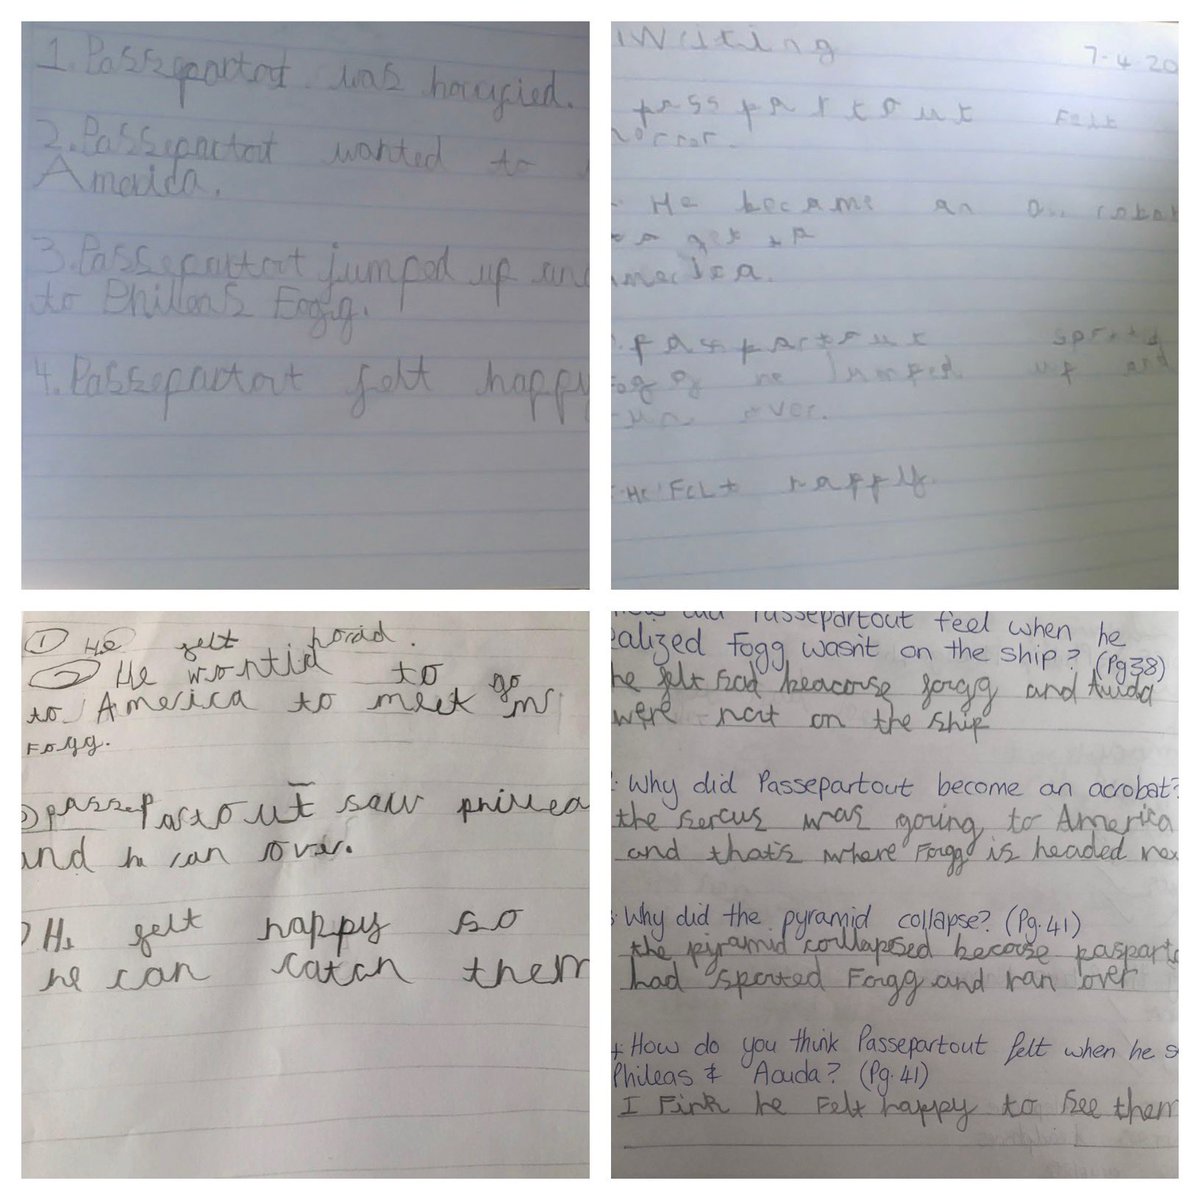 1. Passepartout was horrified.
2. Passepartout wanted to
America.
3. Passepartout jumped up and
to Phileas Fogg.
4. Passepartout felt happy
Writing
7.4.20
passpartout Felt
horror.
He became an
to get to
merica.
paspartout
he jumped up and
over.
He Felt happy.
① He felt horid.
2 He wontid to go
to America to meet mr
Fogg.
passepartout saw phillea
and he ran over.
He felt happy so
he can catch them
Passepartout feel when he
ealized Fogg wasn't on the ship? (Pg 38)
he felt sad beacouse forgg and Auida
were not on the ship
Why did Passepartout become an acrobat?
the sercus was gouing to America
and thats where Forgg is headed nex
Why did the pyramid collapse? (Pg. 41)
the piyramid coullapsed becouse paspart
had spoted Forgg and ran over
How do you think Passepartout felt when he s
Phileas & Aouda? (Pg. 41)
I Fink he Felt happy to see them